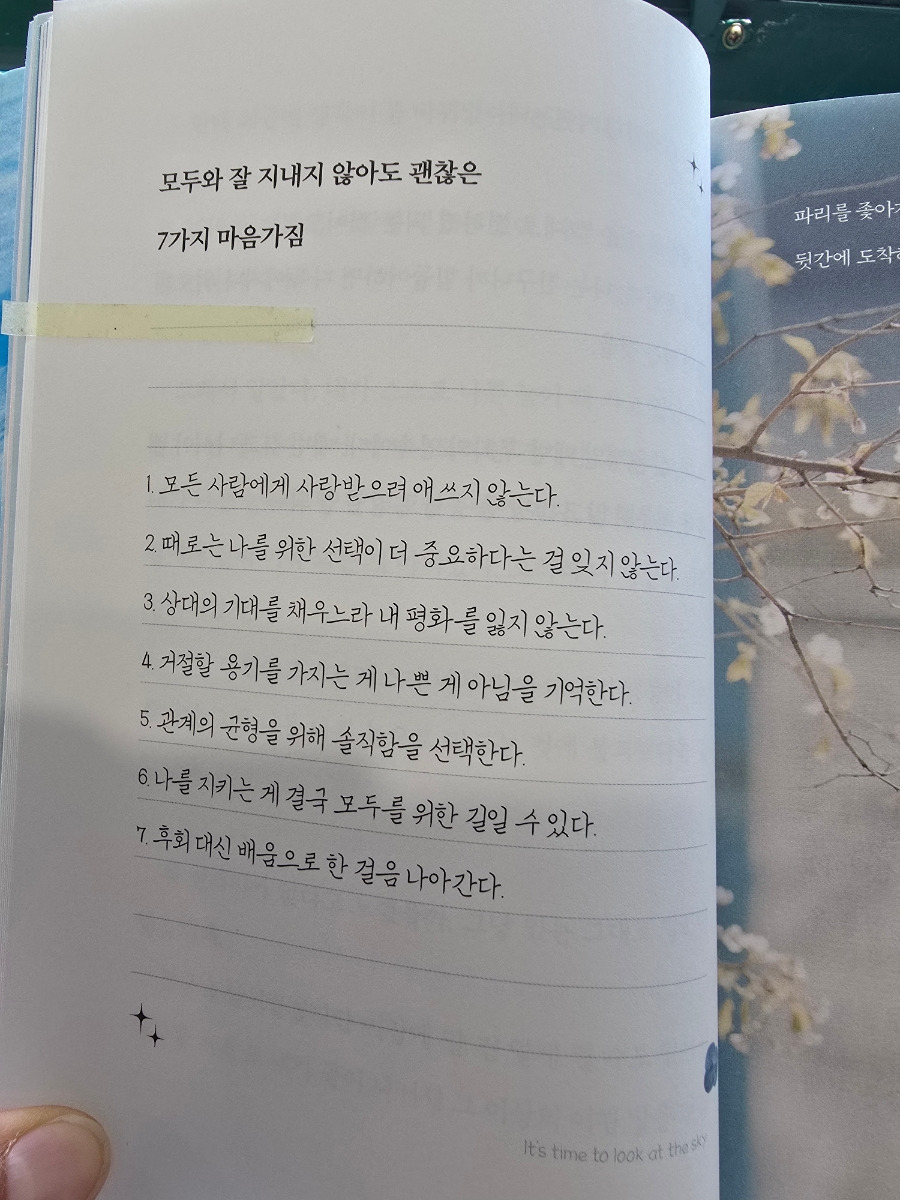 모두와 잘 지내지 않아도 괜찮은
7가지 마음가짐
1. 모든 사람에게 사랑받으려 애쓰지 않는다.
2. 때로는 나를 위한 선택이 더 중요하다는 걸 잊지 않는다.
3. 상대의 기대를 채우느라 내 평화를 잃지 않는다.
4. 거절할 용기를 가지는 게 나쁜 게 아님을 기억한다.
5. 관계의 균형을 위해 솔직함을 선택한다.
6. 나를 지키는 게 결국 모두를 위한 길일 수 있다.
7. 후회 대신 배움으로 한 걸음 나아간다.
It's time to look at the sky
파리를 좇아
뒷간에